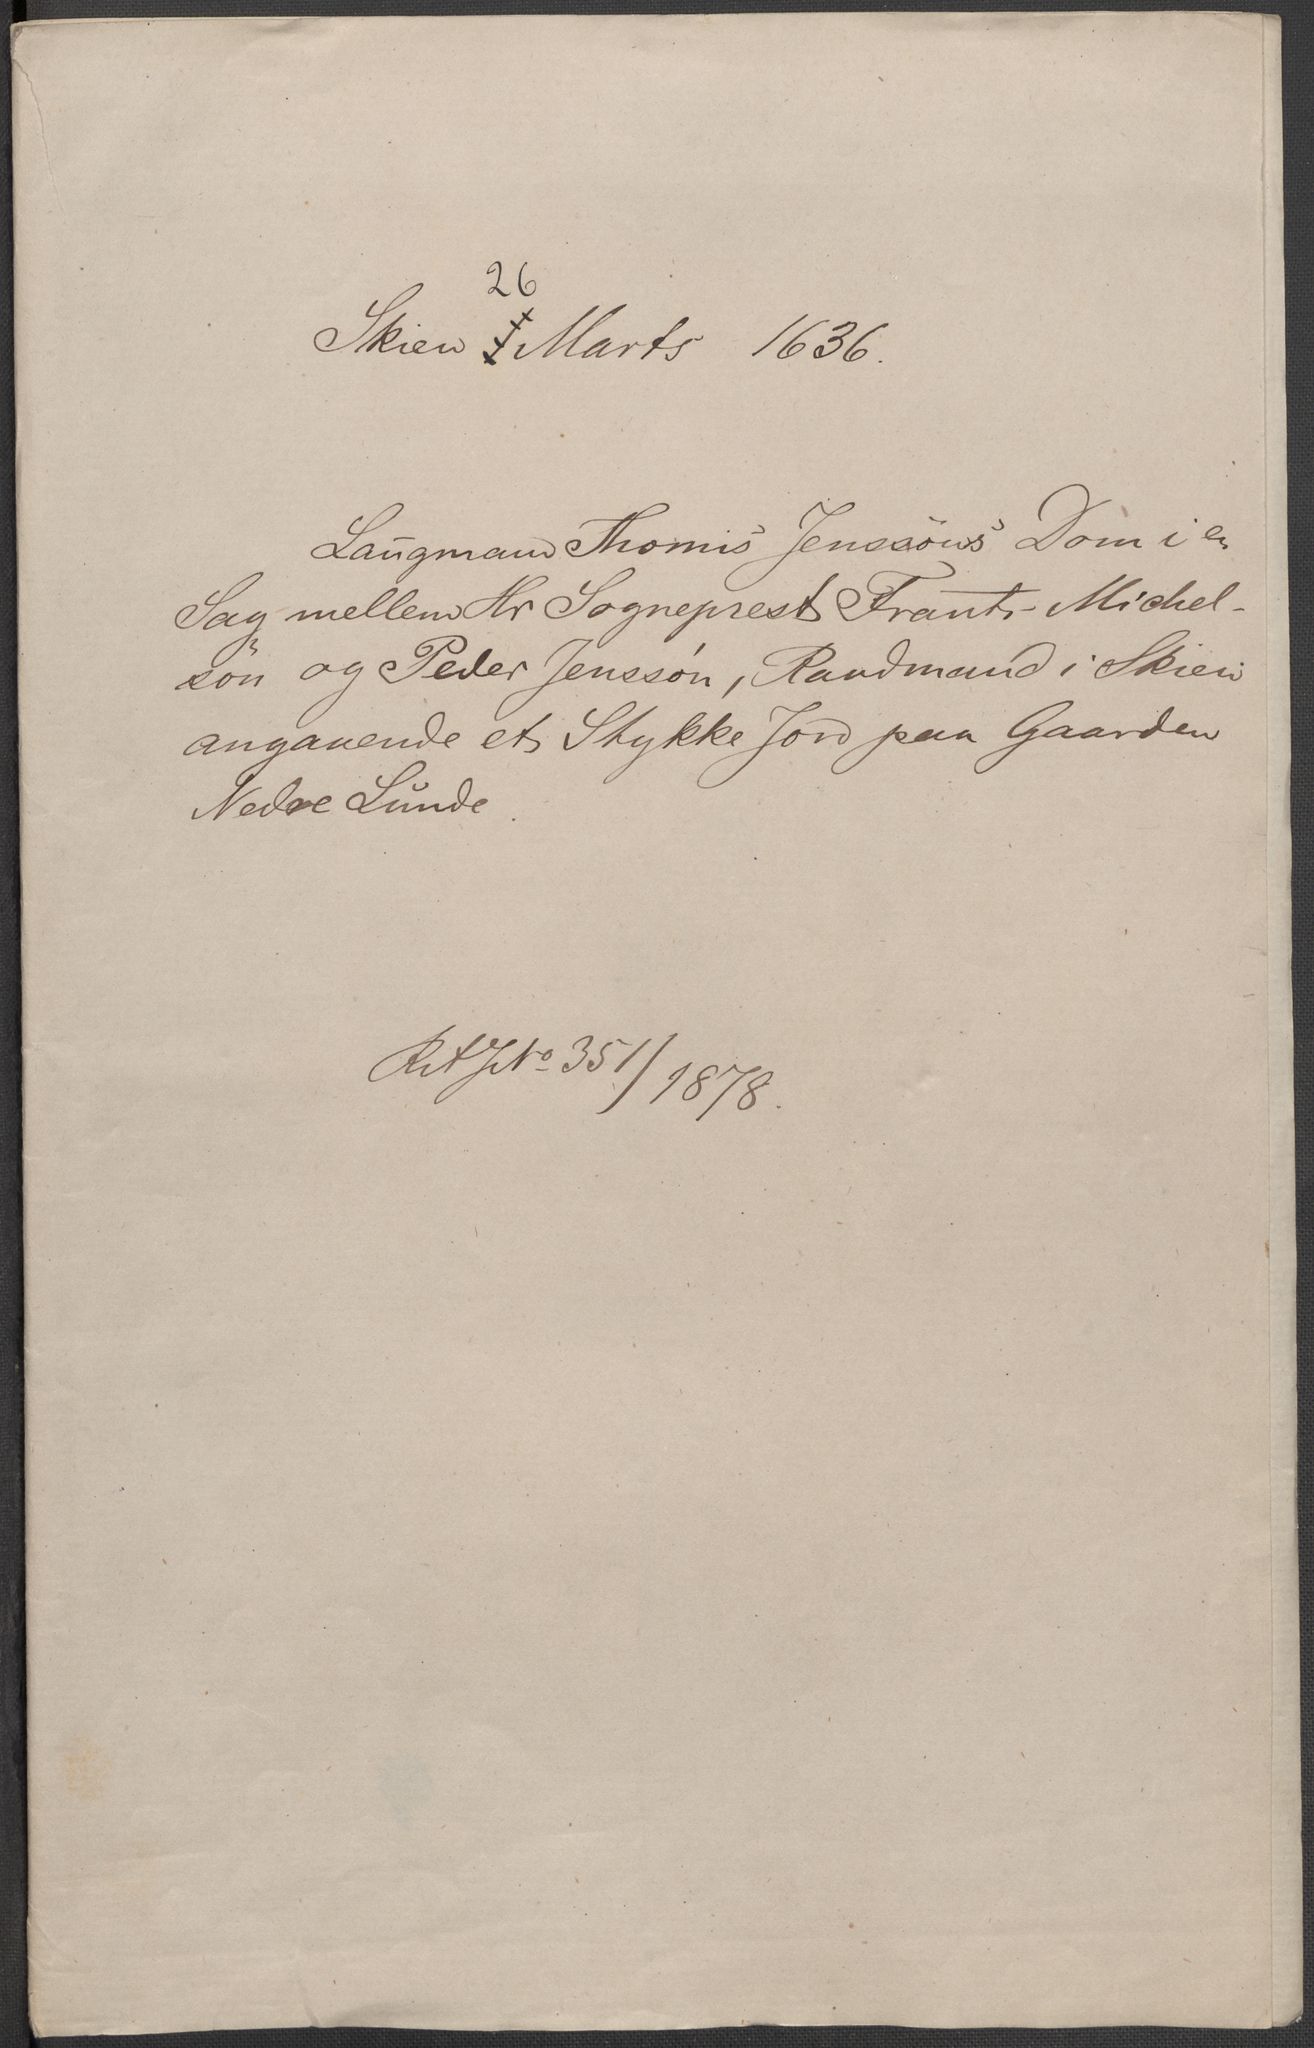 26
Skien Marts 1636.
Laugmand Thomis Jenssöns Dom i en
Sag mellem Hr Sogneprest Frants Michel-
sön og Peder Jenssón, Raadmand i Skien
angaaende et Stykke Jord paa Gaarden
Nedre Lunde.
RA JNo 351/1878.